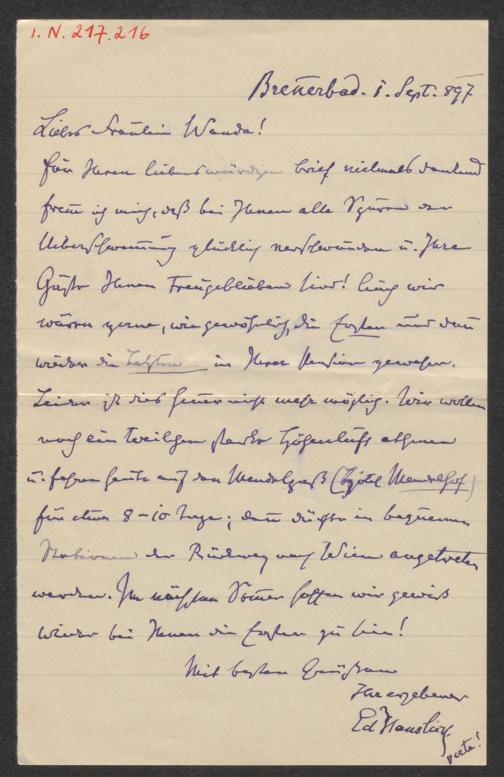 I. N. 217.216
Brennerbad. 1. Sept. 897
Liebes Fräulein Wanda!
Für Ihren liebenswürdigen Brief vielmals dankend
freue ich mich, daß bei Ihnen alle Spuren der
Ueberschwemmung glücklich verschwunden u. Ihre
Gäste Ihnen treugeblieben sind! Auch wir
wären gerne, wie gewöhnlich, die Ersten und dann
wieder die Letzten in Ihrer Pension gewesen.
Leider ist dies heuer nicht mehr möglich. Wir wollen
noch ein Weilchen starke Höhenluft athmen
u. fahren heute auf den Mendelpaß (Hôtel Mendelhof)
für etwa 8-10 Tage; dann dürfte in bequemen
Stationen der Rückweg nach Wien angetreten
werden. Im nächsten Sommer hoffen wir gewiß
wieder bei Ihnen die Ersten zu sein!
Mit besten Grüßen
Ihr ergebener
Ed Hanslick
verte!